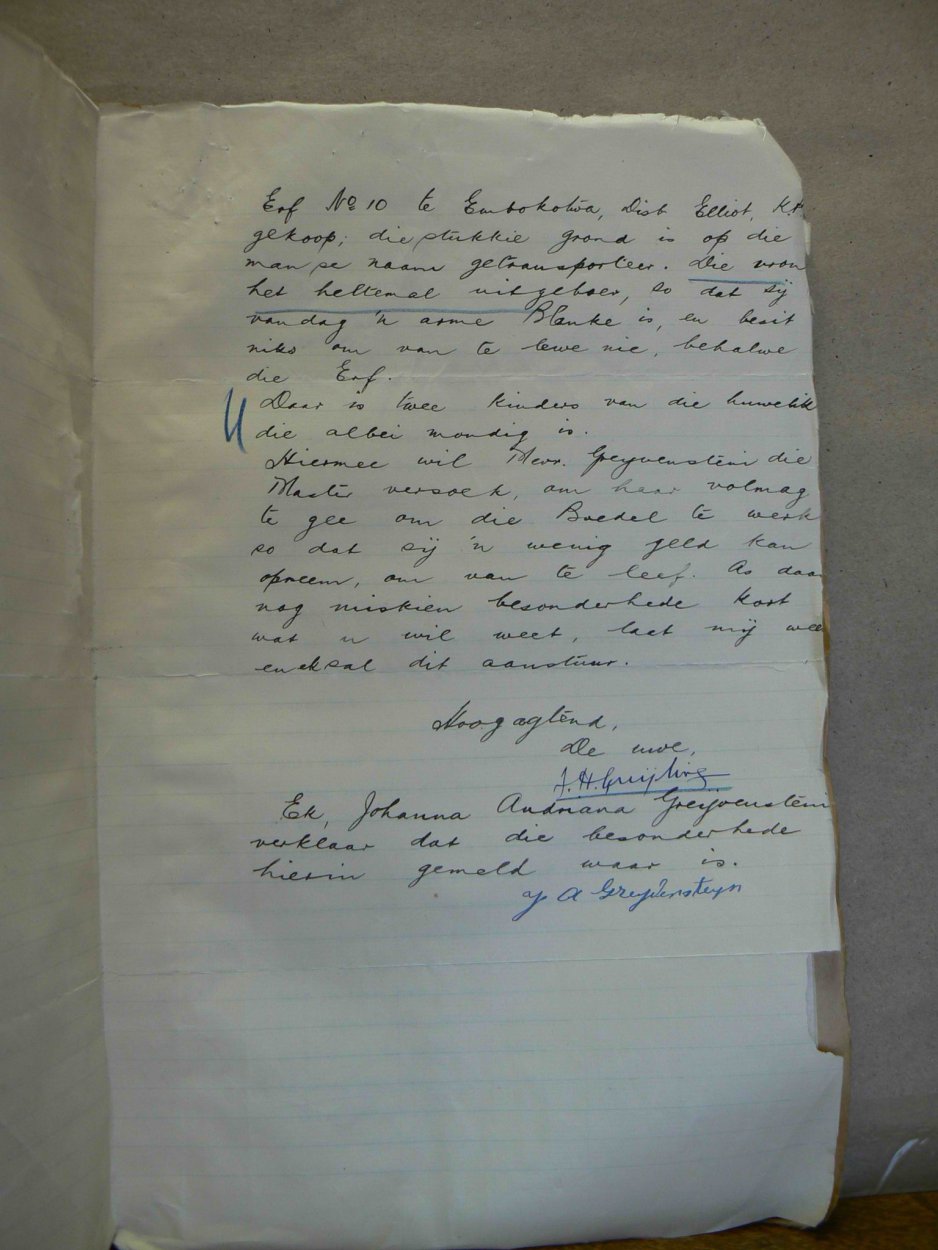 Erf No 10 te Embokotwa, Dist Elliot, K.P.
gekoop; die stukkie grond is op die
man se naam getransporteer. Die vrou
het heltemal uitgeboer, so dat sij
vandag 'n arme Blanke is, en besit
niks om van te lewe nie, behalwe
die Erf.
Daar is twee kinders van die huwelik
die albei mondig is.
Hiermee wil Mevr. Greyvenstein die
Master versoek, om haar volmag
te gee om die Boedel te werk
so dat sij 'n wenig geld kan
opneem, om van te leef. As daar
nog miskien besonderhede kort
wat u wil weet, laat mij wee
en ek sal dit aanstuur.
Hoogagtend,
De uwe,
J. H. Greijling
Ek, Johanna Andriana Greyvenstein
verklaar dat die besonderhede
hierin gemeld waar is.
J A Greyvensteyn